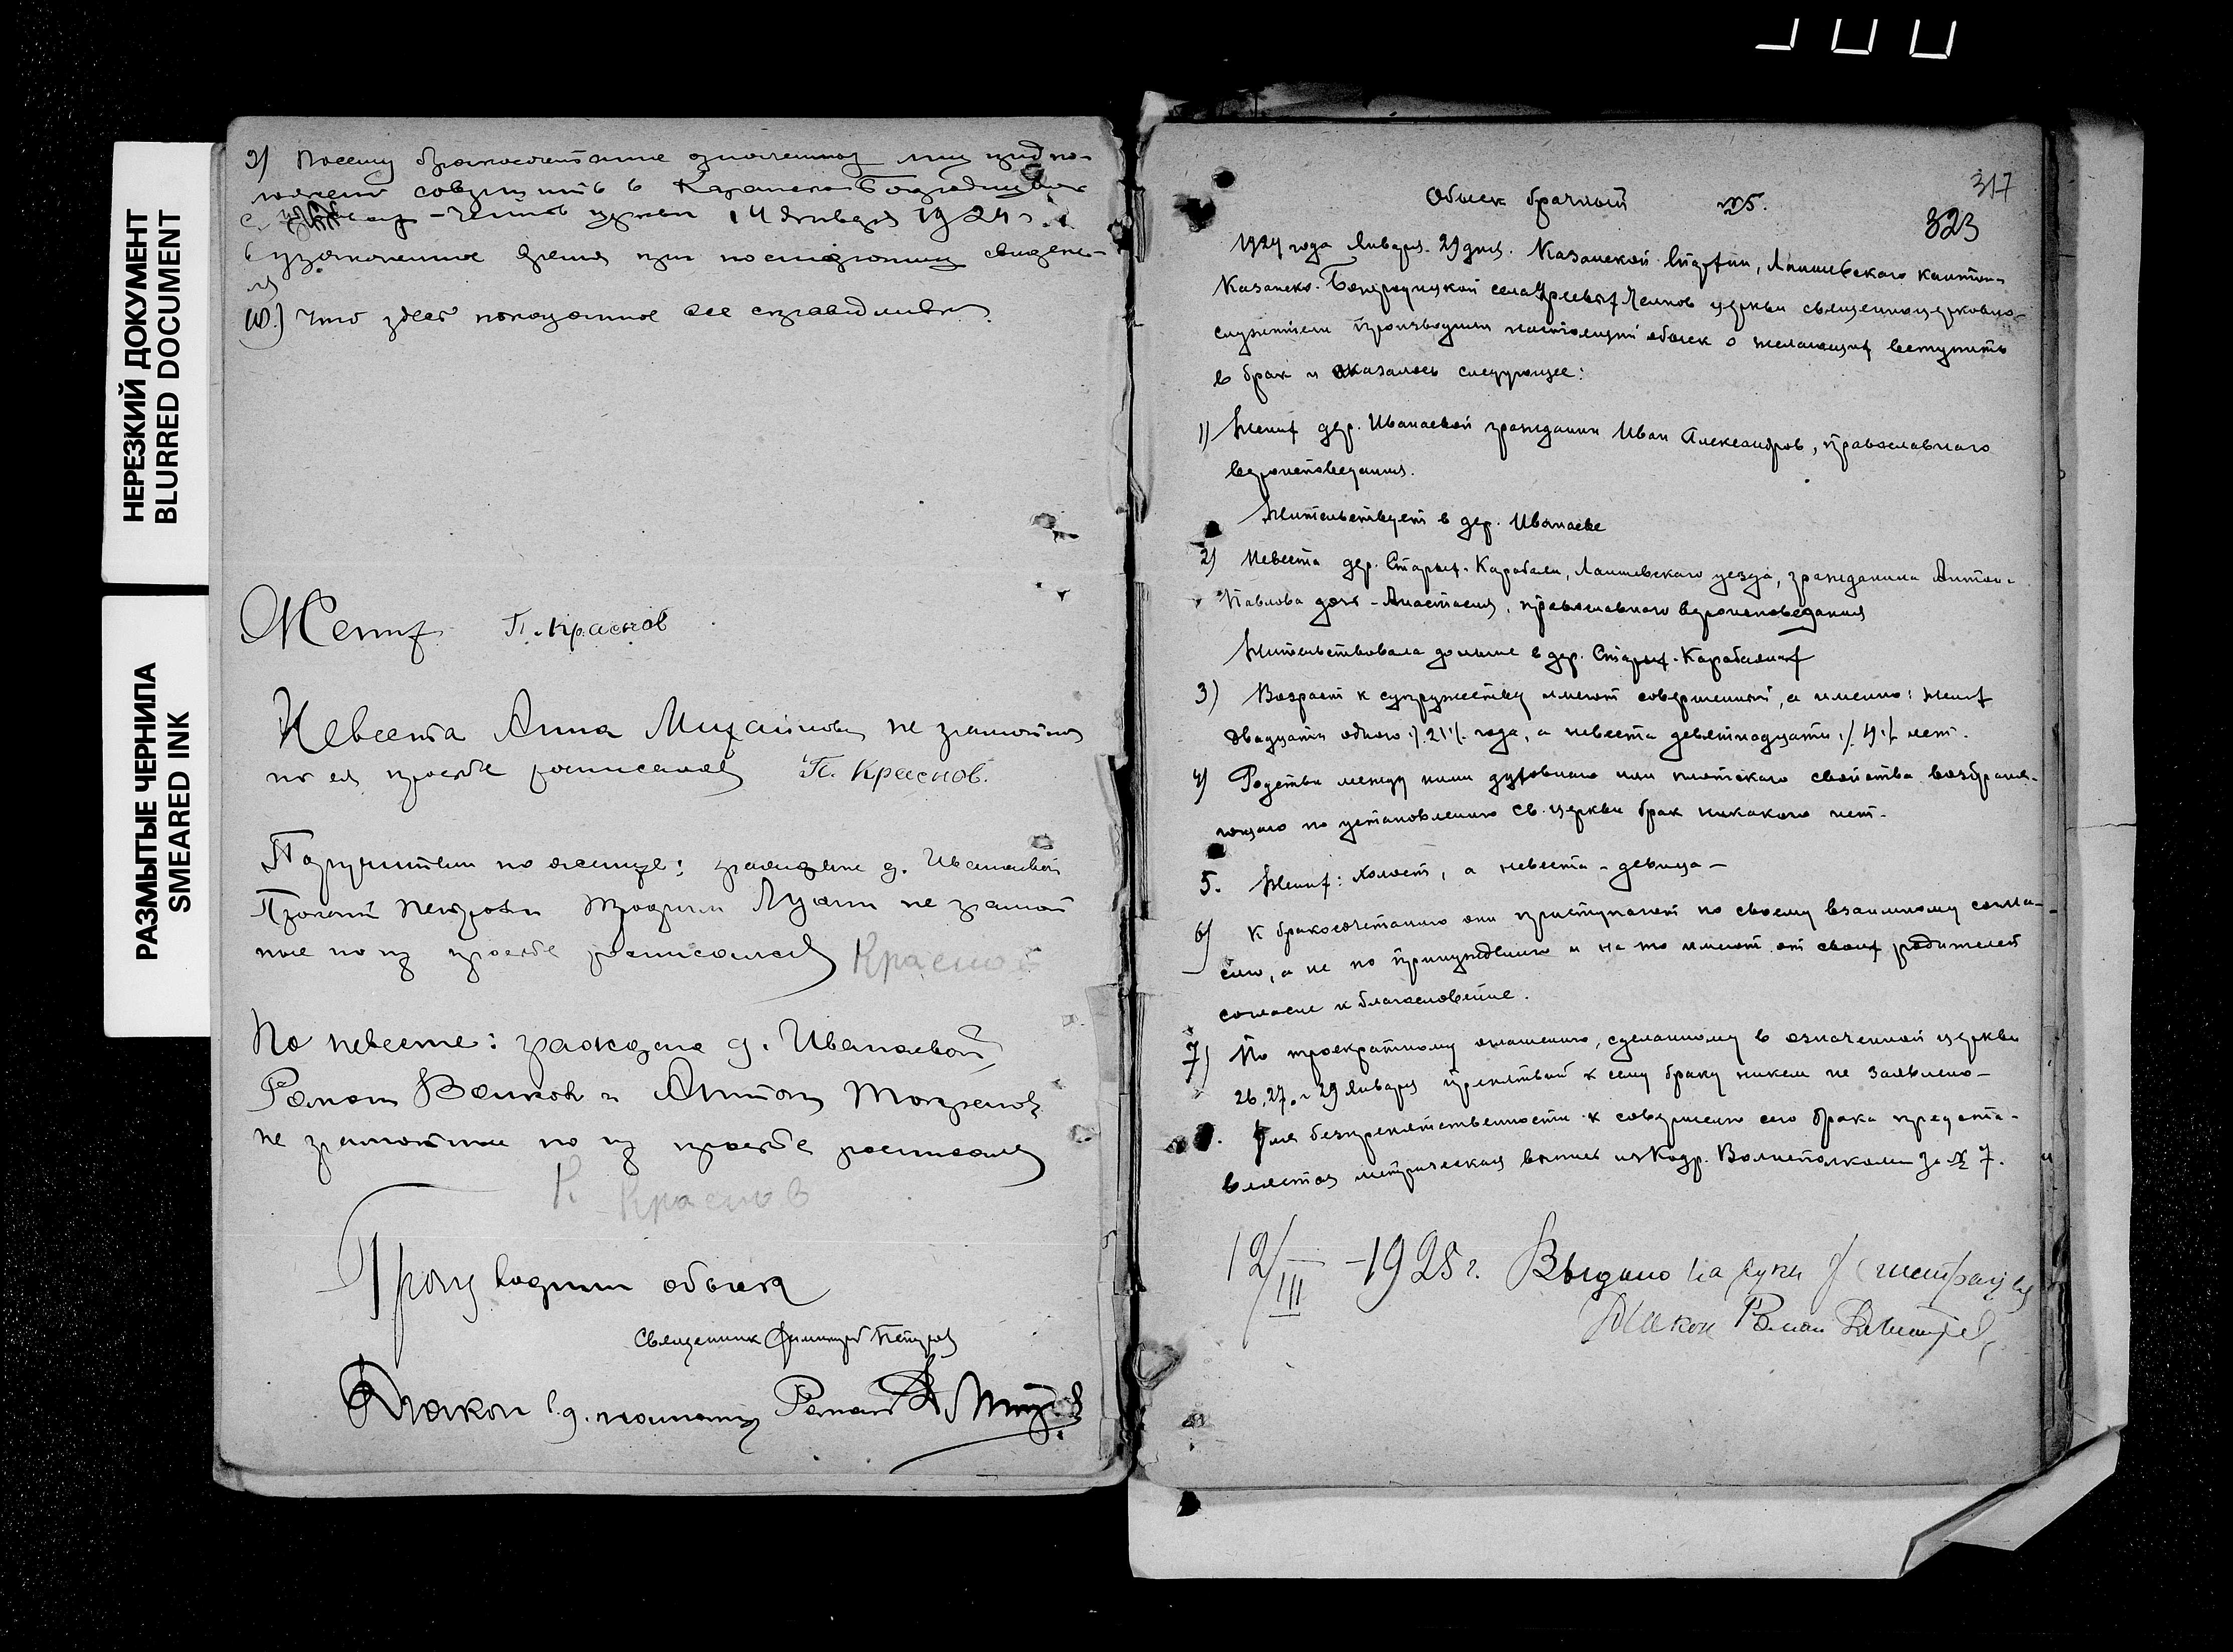 НЕРЕЗКИЙ ДОКУМЕНТ
BLURRED DOCUMENT
РАЗМЫТЫЕ ЧЕРНИЛА
SMEARED INK
9) Посему бракосочетание означенных лиц предпо-
ложено совершить в Казанско-Богородицкой
с. Чепчов церкви 14 января 1924 г.
в узаконенное время при посторонних свидете-
лях
10.) Что здесь показанное все справедливо.
Жених П. Краснов
Невеста Анна Михайлова не грамотна
по ея просьбе росписался П. Краснов.
Поручители по женихе: граждане д. Иванаевой
не грамот
ные по их просьбе росписался Краснов
По невесте: граждане д. Иванаевой
Роман Волков и Антон
не грамотные по их просьбе росписался
П. Краснов
Производили обыск
Священник Димитрий Петров
Диакон Роман
317
Обыск брачный №5.
323
1924 года Января 29 дня. Казанской епархии, Лаишевского кантона
Казанско-Богородицкой села церкви священноцерковно-
служители производили настоящий обыск о желающих вступить
в брак и оказалось следующее:
1) Жених дер. Иванаевой гражданин Иван Александров, православного
вероисповедания.
Жительствует в дер. Иванаеве
2) Невеста дер. Старых-Карабаян, Лаишевского уезда, гражданина Антона
Павлова дочь - Анастасия, православного вероисповедания
Жительствовала доныне в дер. Старых-Карабаянах
3) Возраст к супружеству имеют совершенный, а именно: жених
двадцати одного /21/ года, а невеста девятнадцати /19/ лет.
4) Родства между ними духовного или плотского свойства возбраня-
ющаго по установлению св. церкви брак никакого нет.
5. Жених: холост, а невеста - девица -
6) К бракосочетанию они приступают по своему взаимному согла-
сию, а не по принуждению и на то имеют от своих родителей
согласие и благословение.
7) По троекратному оглашению, сделанному в означенной церкви
26, 27, и 29 Января препятствий к сему браку никем не заявлено -
8. Для безпрепятственности к совершению сего брака предста-
вляется метрическая выпись из Кадр. Волисполкома за № 7.
12/III - 1925 г. Выдано на руки
Диакон Роман